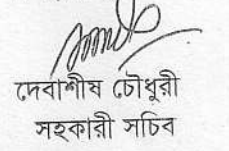 দেবাশীষ চৌধুরী
সহকারী সচিব